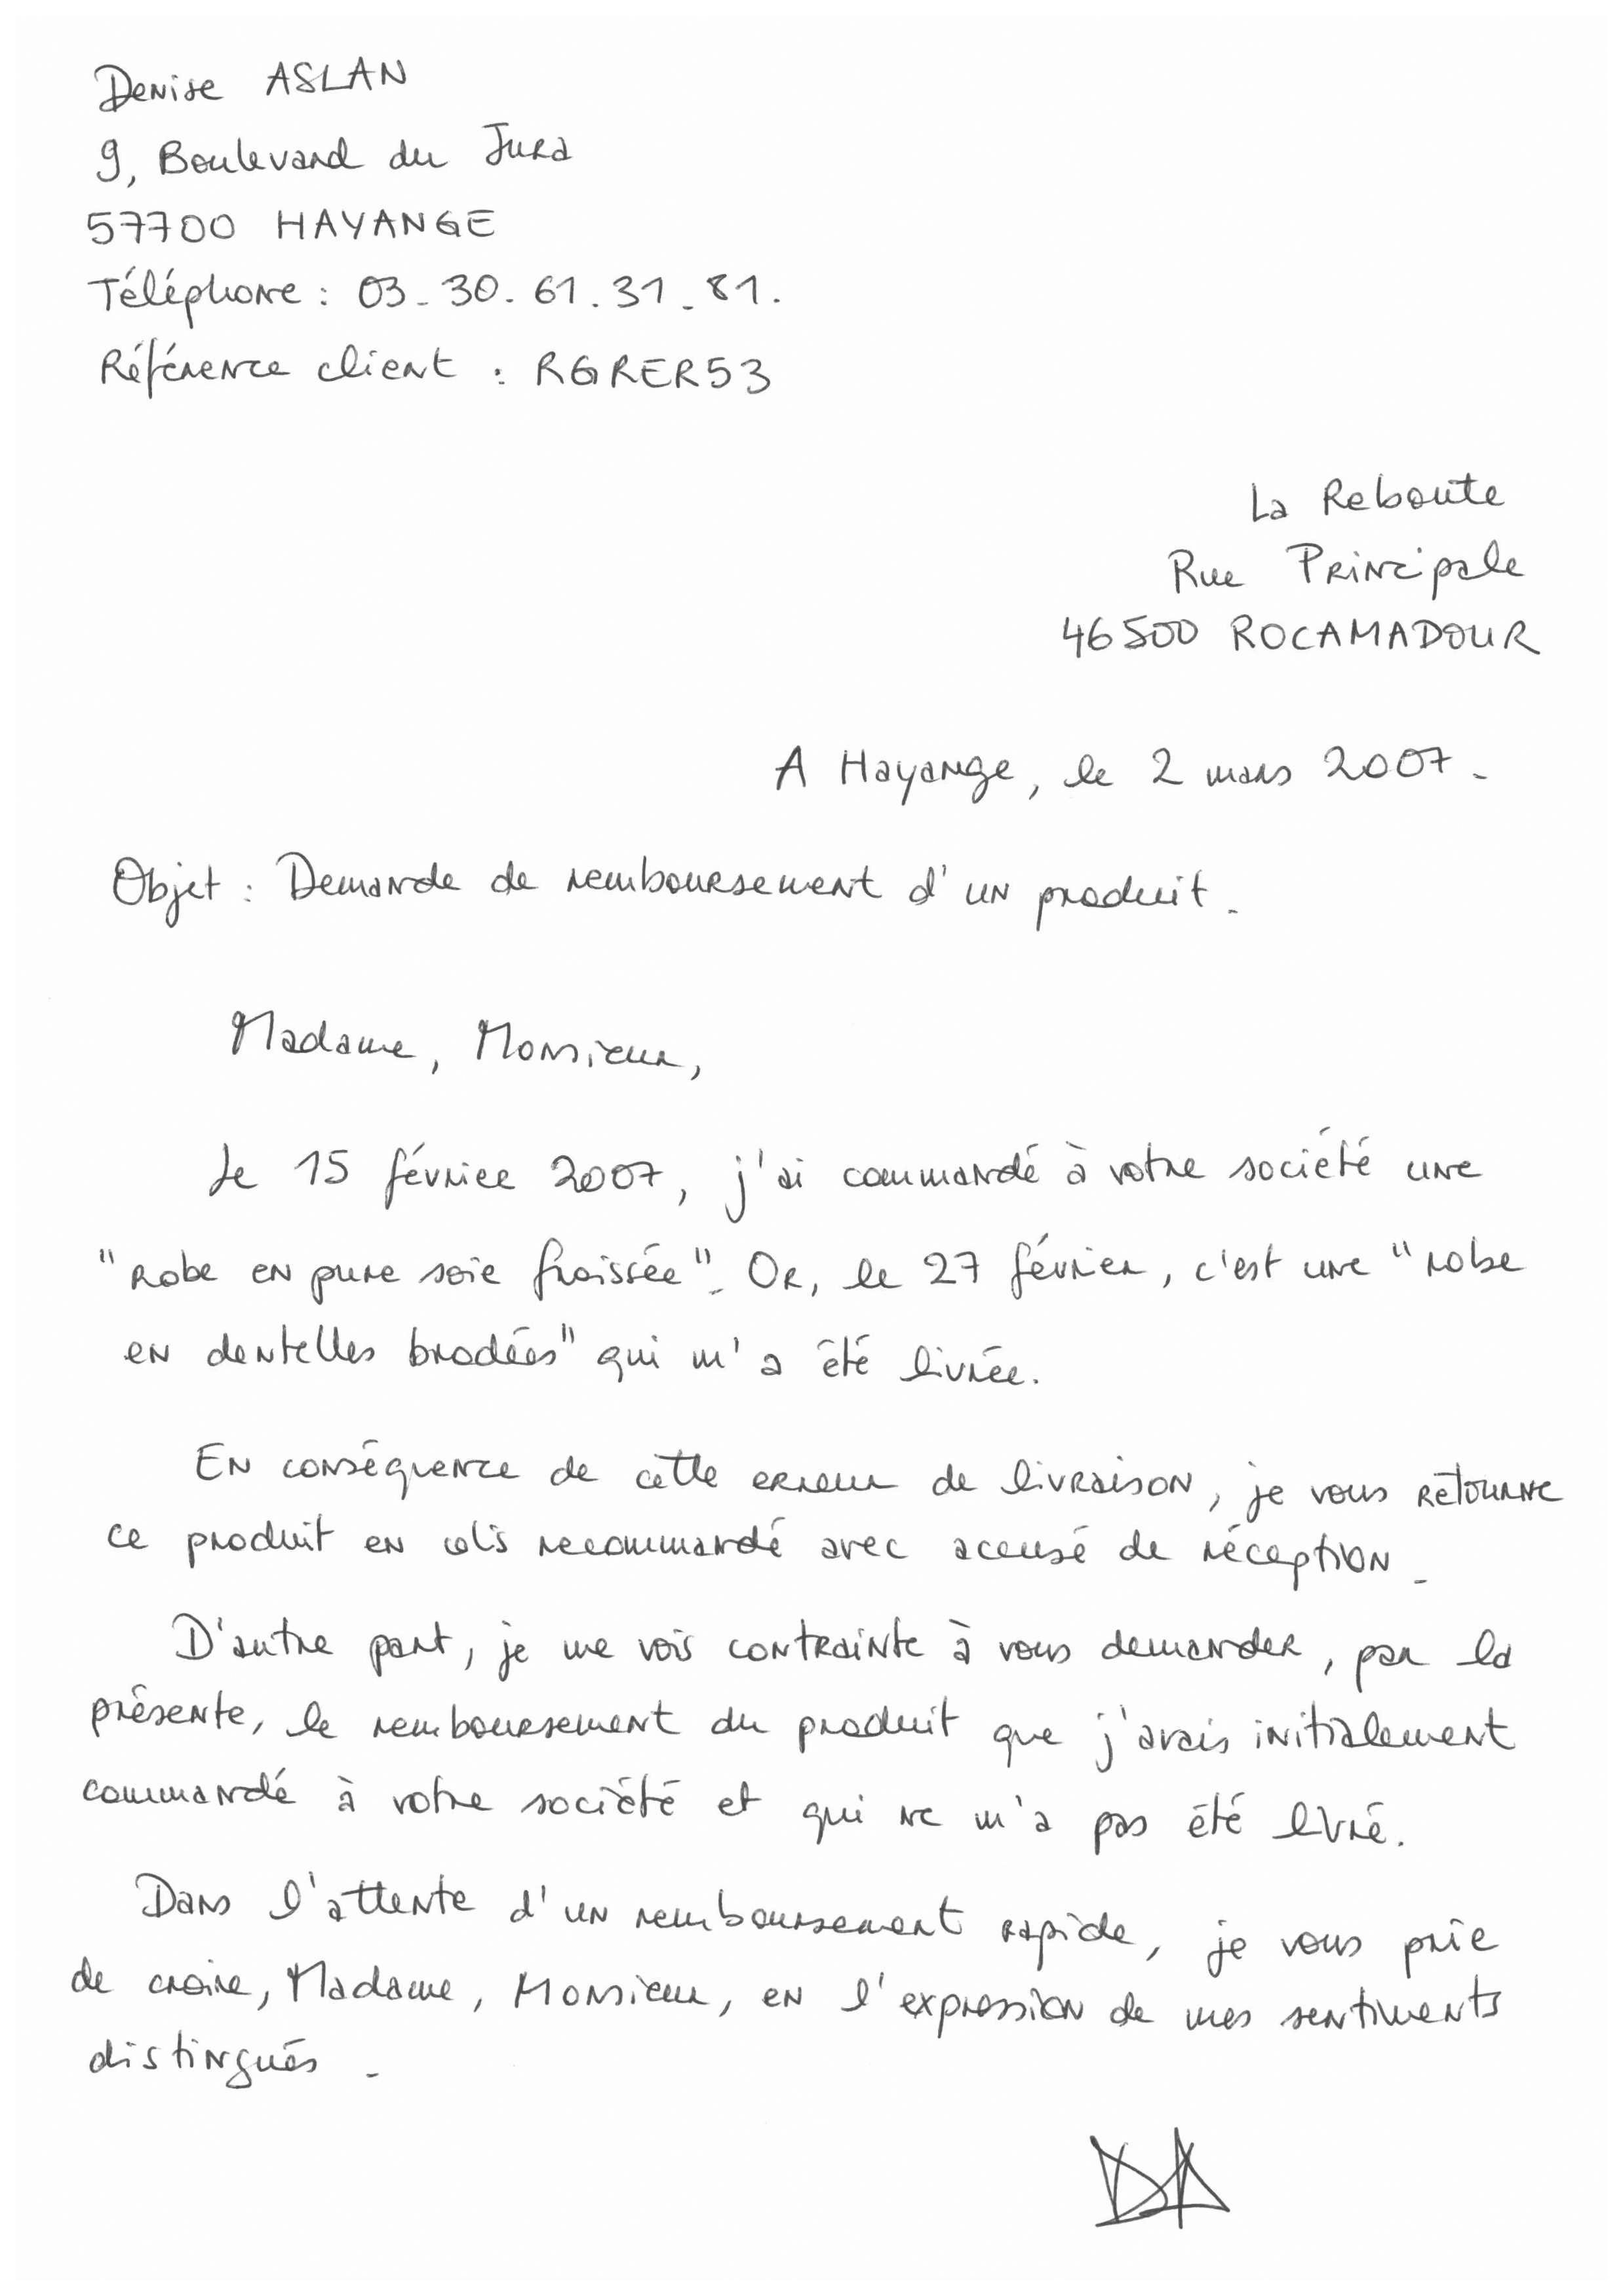 Denise ASLAN
9, Boulevard du Jura
57700 HAYANGE
Téléphone : 03-30.61.31-81.
Référence client : RGRER53
La Reboute
Rue Principale
46500 ROCAMADOUR
A Hayange, le 2 mars 2007.
Objet : Demande de remboursement d'un produit.
Madame, Monsieur,
Le 15 février 2007, j'ai commandé à votre société une
"robe en pure soie froissée". Or, le 27 février, c'est une "robe
en dentelles brodées" qui m'a été livrée.
En conséquence de cette erreur de livraison, je vous retourne
ce produit en colis recommandé avec accusé de réception.
D'autre part, je me vois contrainte à vous demander, par la
présente, le remboursement du produit que j'avais initialement
commandé à votre société et qui ne m'a pas été livré.
Dans l'attente d'un remboursement rapide, je vous prie
de croire, Madame, Monsieur, en l'expression de mes sentiments
distingués.
DA